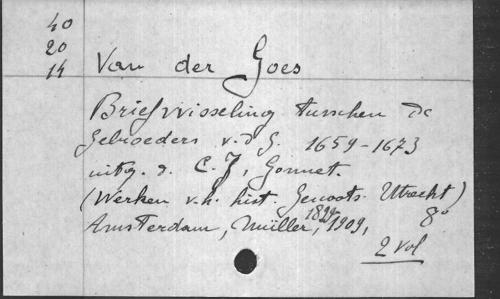 40
20
14
Van der Goes
Briefwisseling tusschen de
Gebroeders v.d G. 1659-1673
uitg. d. C. J, Gonnet.
(Werken v.h. hist. Genoots. Utrecht)
Amsterdam, Müller, 1899, 1909, 8°
2 vol